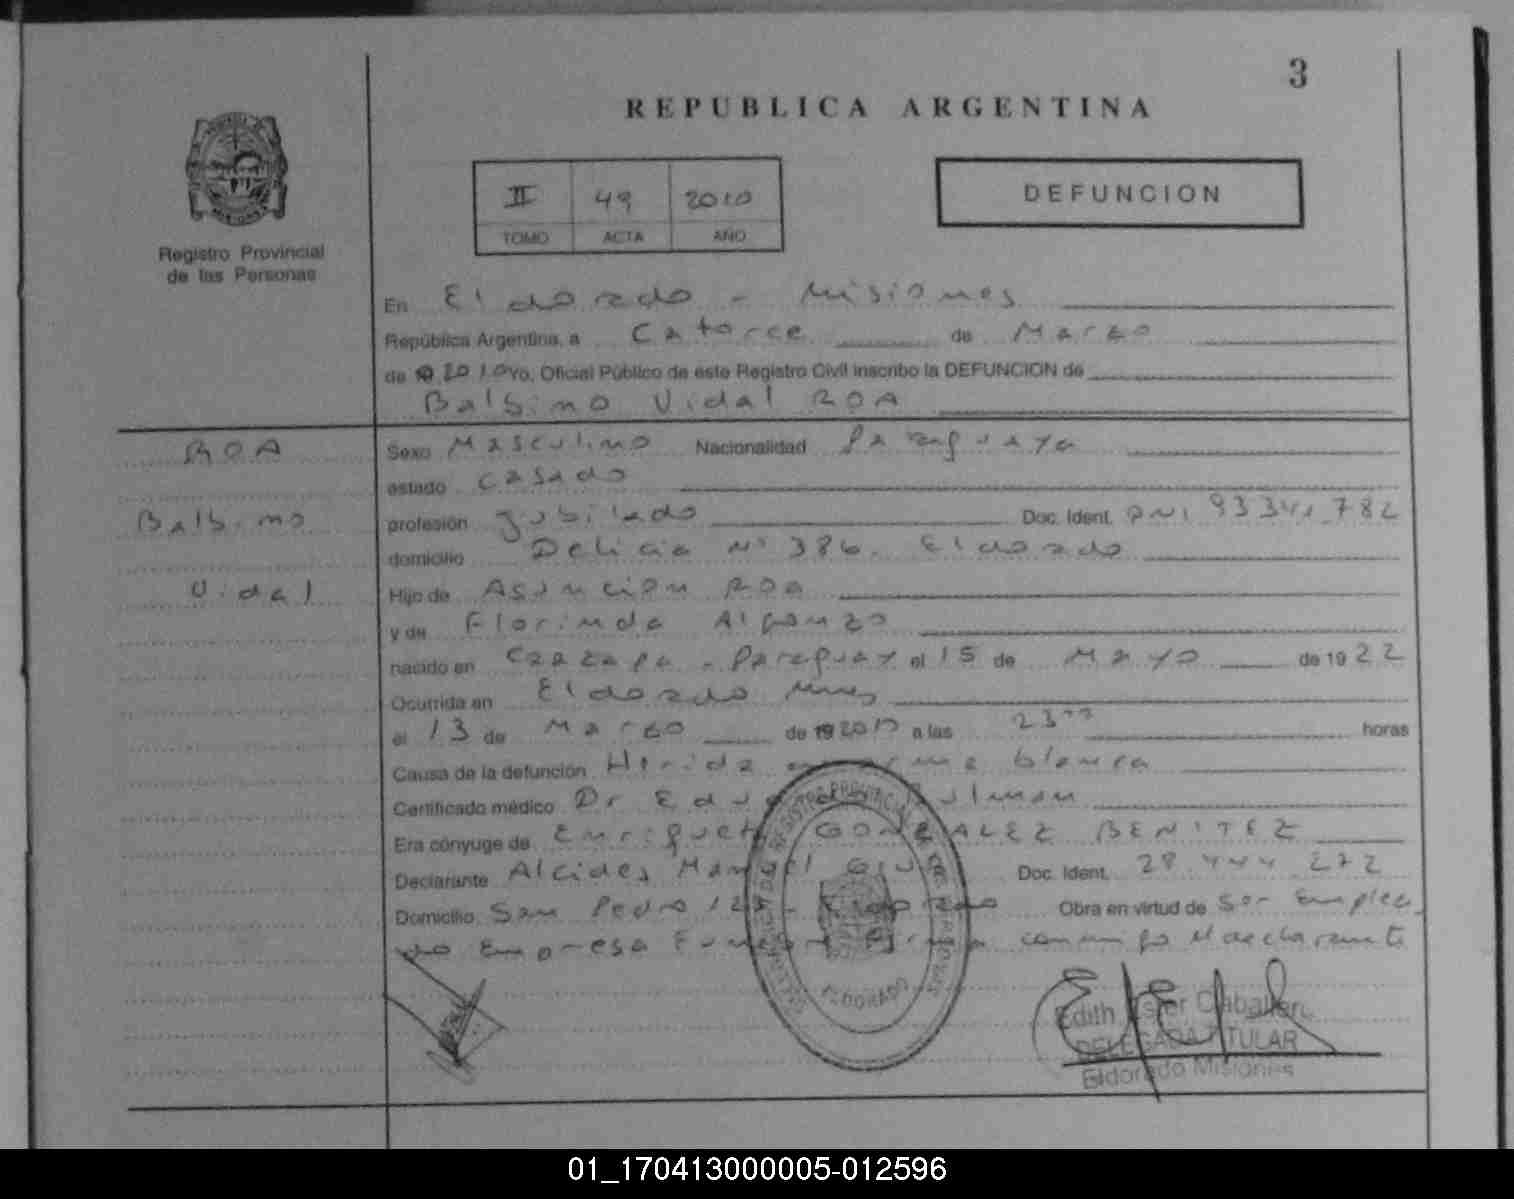 3
REPUBLICA ARGENTINA
II 49 2010
TOMO ACTA AÑO
DEFUNCION
Registro Provincial
de las Personas
En Eldorado - Misiones
República Argentina, a Catorce de Marzo
de 2010 Yo, Oficial Público de este Registro Civil inscribo la DEFUNCION de
Balbino Vidal ROA
ROA
Balbino
Vidal
Sexo Masculino Nacionalidad Paraguaya
estado Casado
profesión Jubilado Doc. Ident. DNI 93341782
domicilio Delicia Nº 386. Eldorado
Hijo de Asuncion ROA
y de Florinda
nacido en Caazapa - Paraguay el 15 de Mayo de 1922
Ocurrida en Eldorado Mnes
el 13 de Marzo de 2010 a las 23 horas
Causa de la defunción Herida arma blanca
Certificado médico Dr Eduardo
Era cónyuge de Enriqueta GONZALEZ BENITEZ
Declarante Alcides Manuel Doc. Ident. 28.444.272
Domicilio San Pedro Eldorado Obra en virtud de ser emplea
do Empresa conmigo el declarante
ELDORADO
Edith Ester Caballero
DELEGADA TITULAR
Eldorado Misiones
01_170413000005-012596